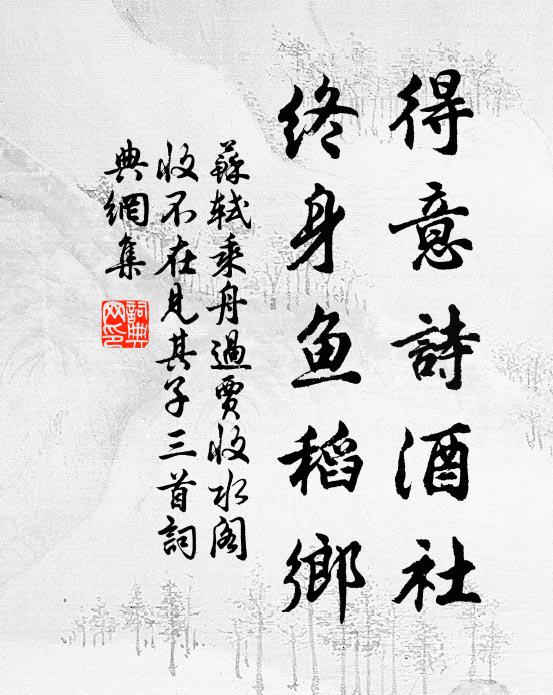 得意詩酒社
终身鱼稻鄉
蘇軾乘舟過賈收水阁
收不在見其子三首詞
典網集
詞典
网印